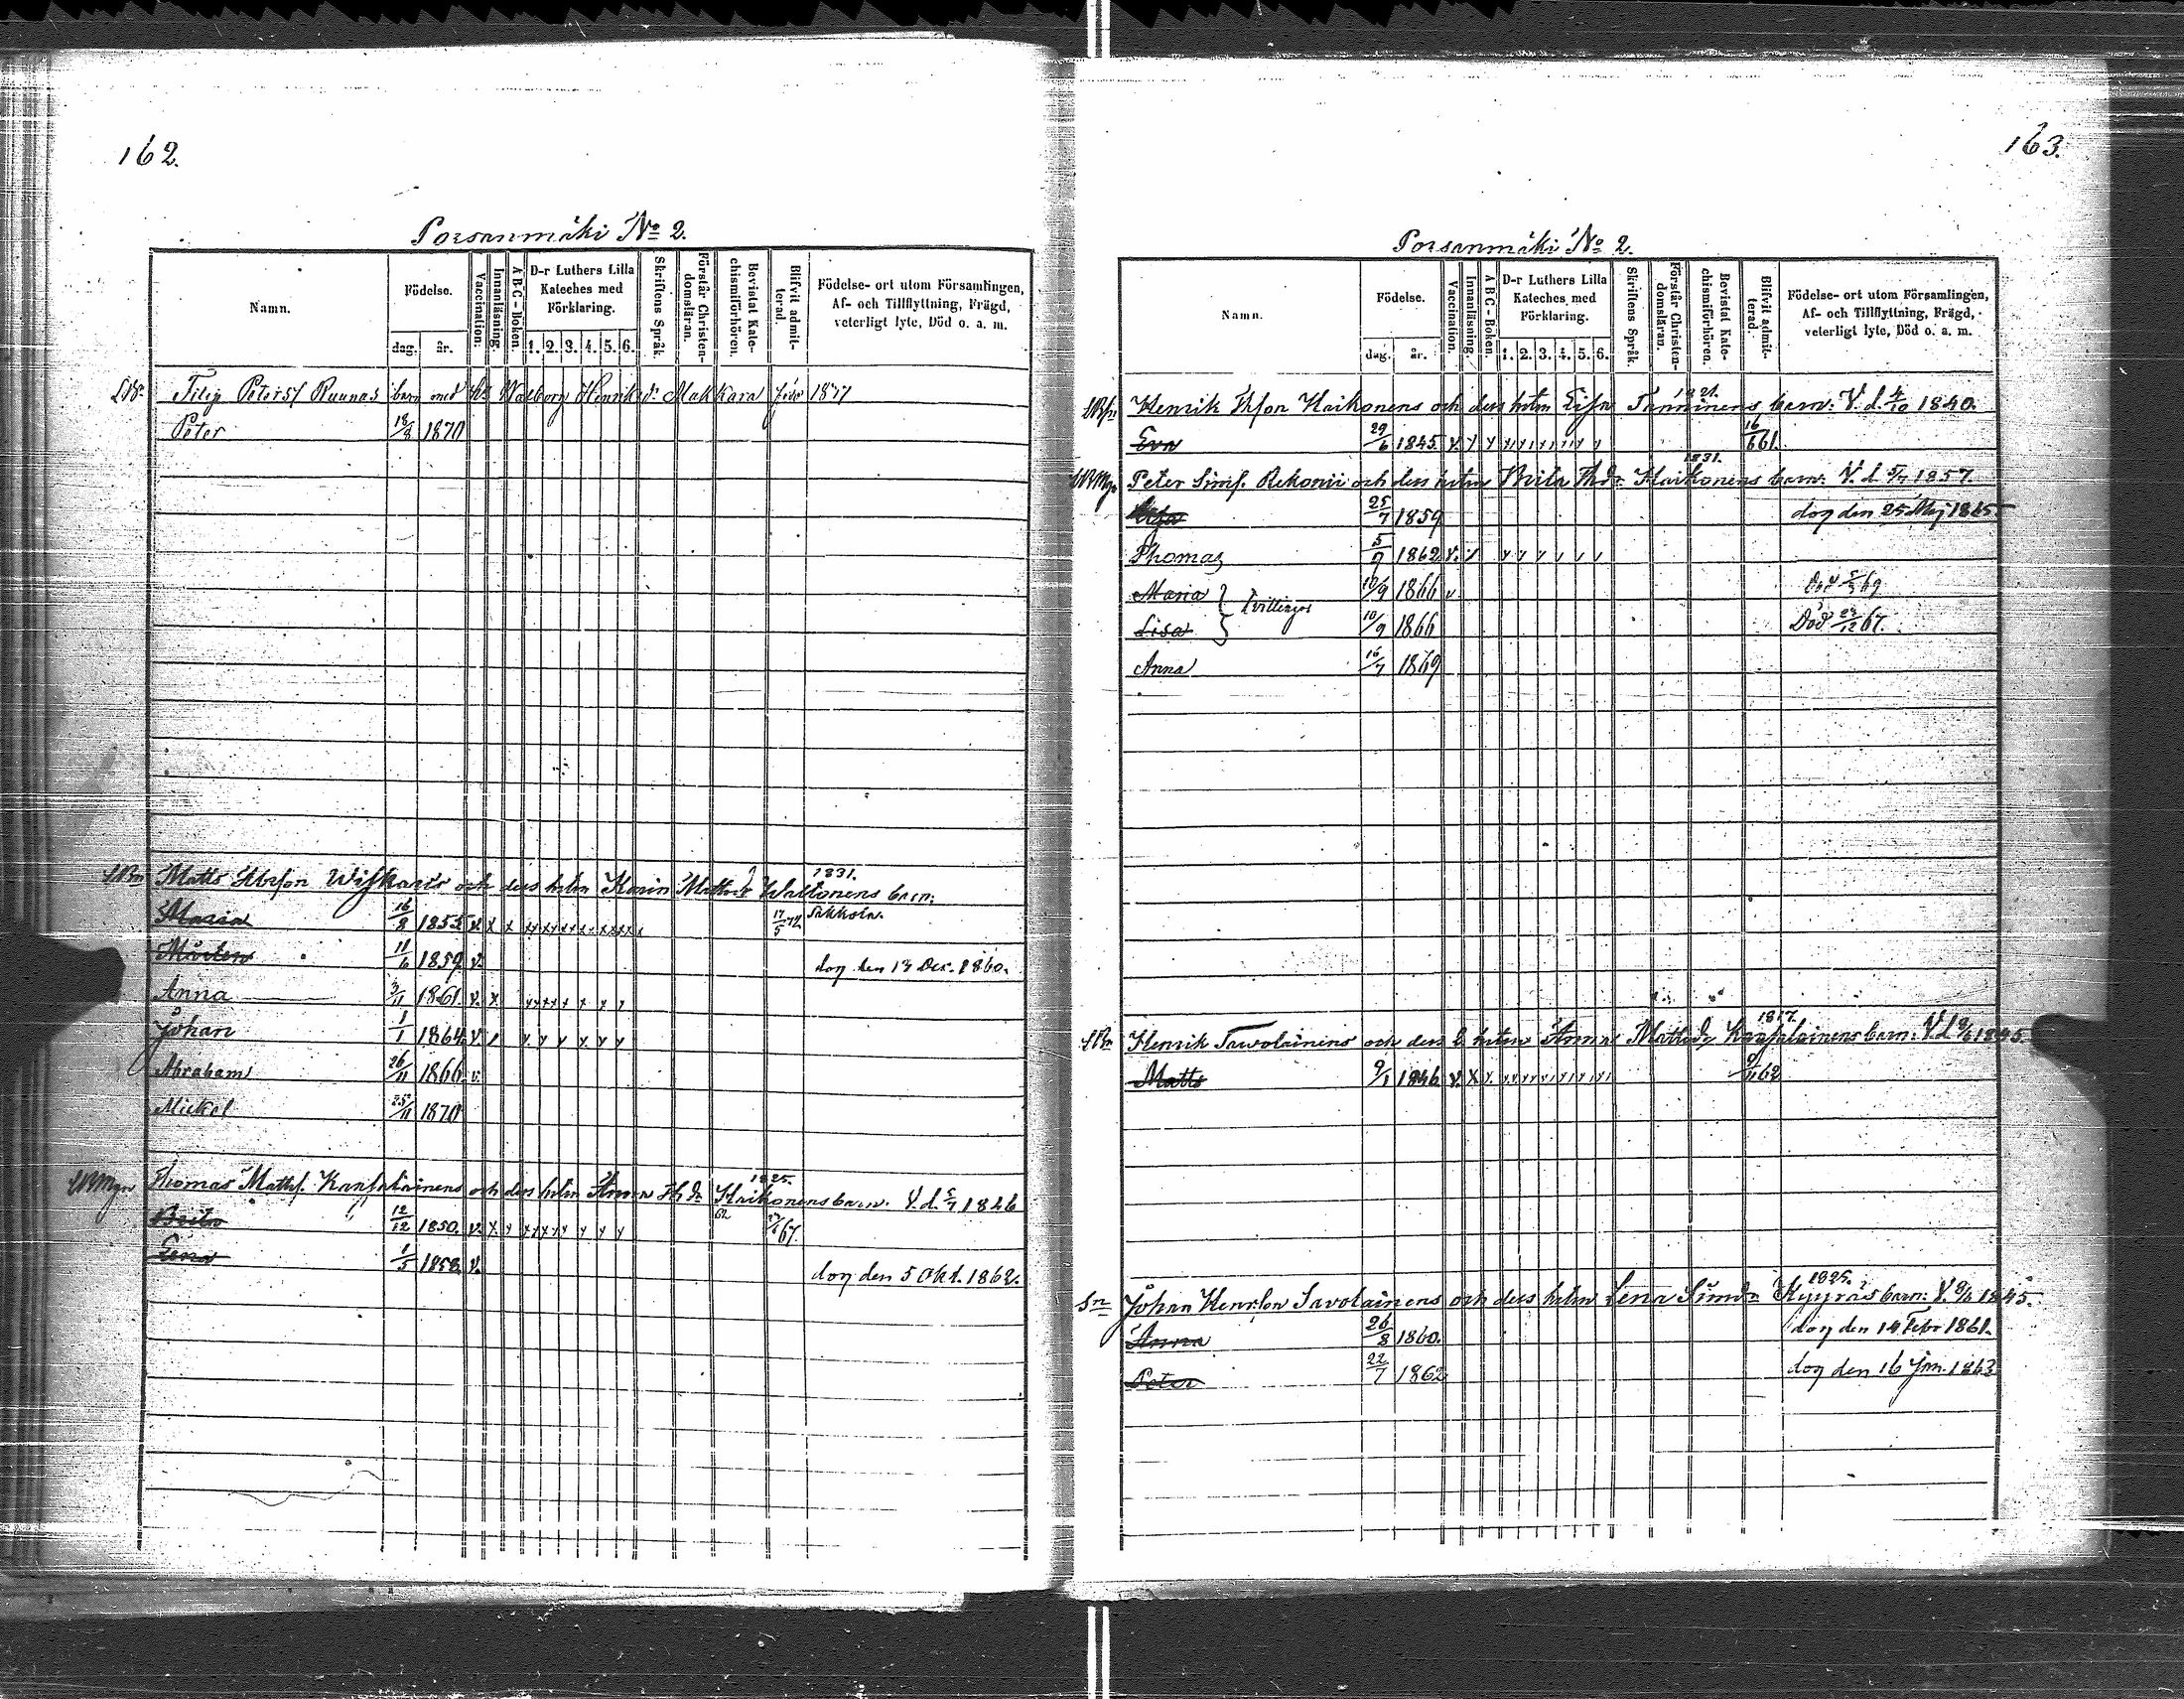 162.
Porsanmäki No 2.
Namn.
Födelse.
dag. år.
Vaccination.
Innanläsning.
ABC-Boken.
D-r Luthers Lilla Kateches med Förklaring.
1. 2. 3. 4. 5. 6.
Skriftens Språk.
Förstår Christendomsläran.
Bevistat Katechismiförhören.
Blifvit admitterad.
Födelse- ort utom Församlingen, Af- och Tillflyttning, Frägd, veterligt lyte, Död o. a. m.
Filip Petersf Ruunas barn med Walborg Henriksd. Makkara 
Peter 18/8 1870
1831.
Matts och dess hstru Karin Mattsdr Waltonens barn.
Maria 16/8 1855 v. x x 17/5 72 Sakkola.
Mårten 11/6 1859 v. dog den 13 Dec. 1860.
Anna 3/11 1861 v. x
Johan 1/1 1864 v.
Abraham 26/11 1866 v.
Mickel 25/11 1870
1825.
Thomas Mattsf. och dess hstru Anna Thdr Haikonens barn. V. d. 5/7 1846
Brita 12/12 1850. v. x 67.
Lena 1/5 1858 v. dog den 5 Okt. 1862.
163.
Porsanmäki No 2.
Namn.
Födelse.
dag. år.
Vaccination.
Innanläsning.
ABC-Boken.
D-r Luthers Lilla Kateches med Förklaring.
1. 2. 3. 4. 5. 6.
Skriftens Språk.
Förstår Christendomsläran.
Bevistat Katechismiförhören.
Blifvit admitterad.
Födelse- ort utom Församlingen, Af- och Tillflyttning, Frägd, veterligt lyte, Död o. a. m.
1821.
Henrik Thson Haikonens och dess hstru Tanninens barn: V. d. 4/10 1840.
Eva 29/6 1845 v. 16/6 61.
1831.
Peter Simsf. Rekonii och dess hstru Brita Thdr Haikonens barn: V. d. 5/7 1857.
25/7 1859 dog den 25 Maj 1865
Thomas 5/9 1862 v.
Maria } Tvillingar 10/9 1866 v. Död 5/3 69
Lisa 10/9 1866 Död 23/12 67.
Anna 16/7 1869
1817.
Henrik Sawolainens och dess hstru Anna Mattsdr barn: V. d. 1845.
Matts 9/1 1846 v. x 9/11 62
1825.
Johan Henrson Savolainens och dess hstru Lena Simdr Kyyräs barn: V. 1845.
Anna 26/8 1860. dog den 14 Febr 1861.
Peter 22/7 1862 dog den 16 Jan. 1863